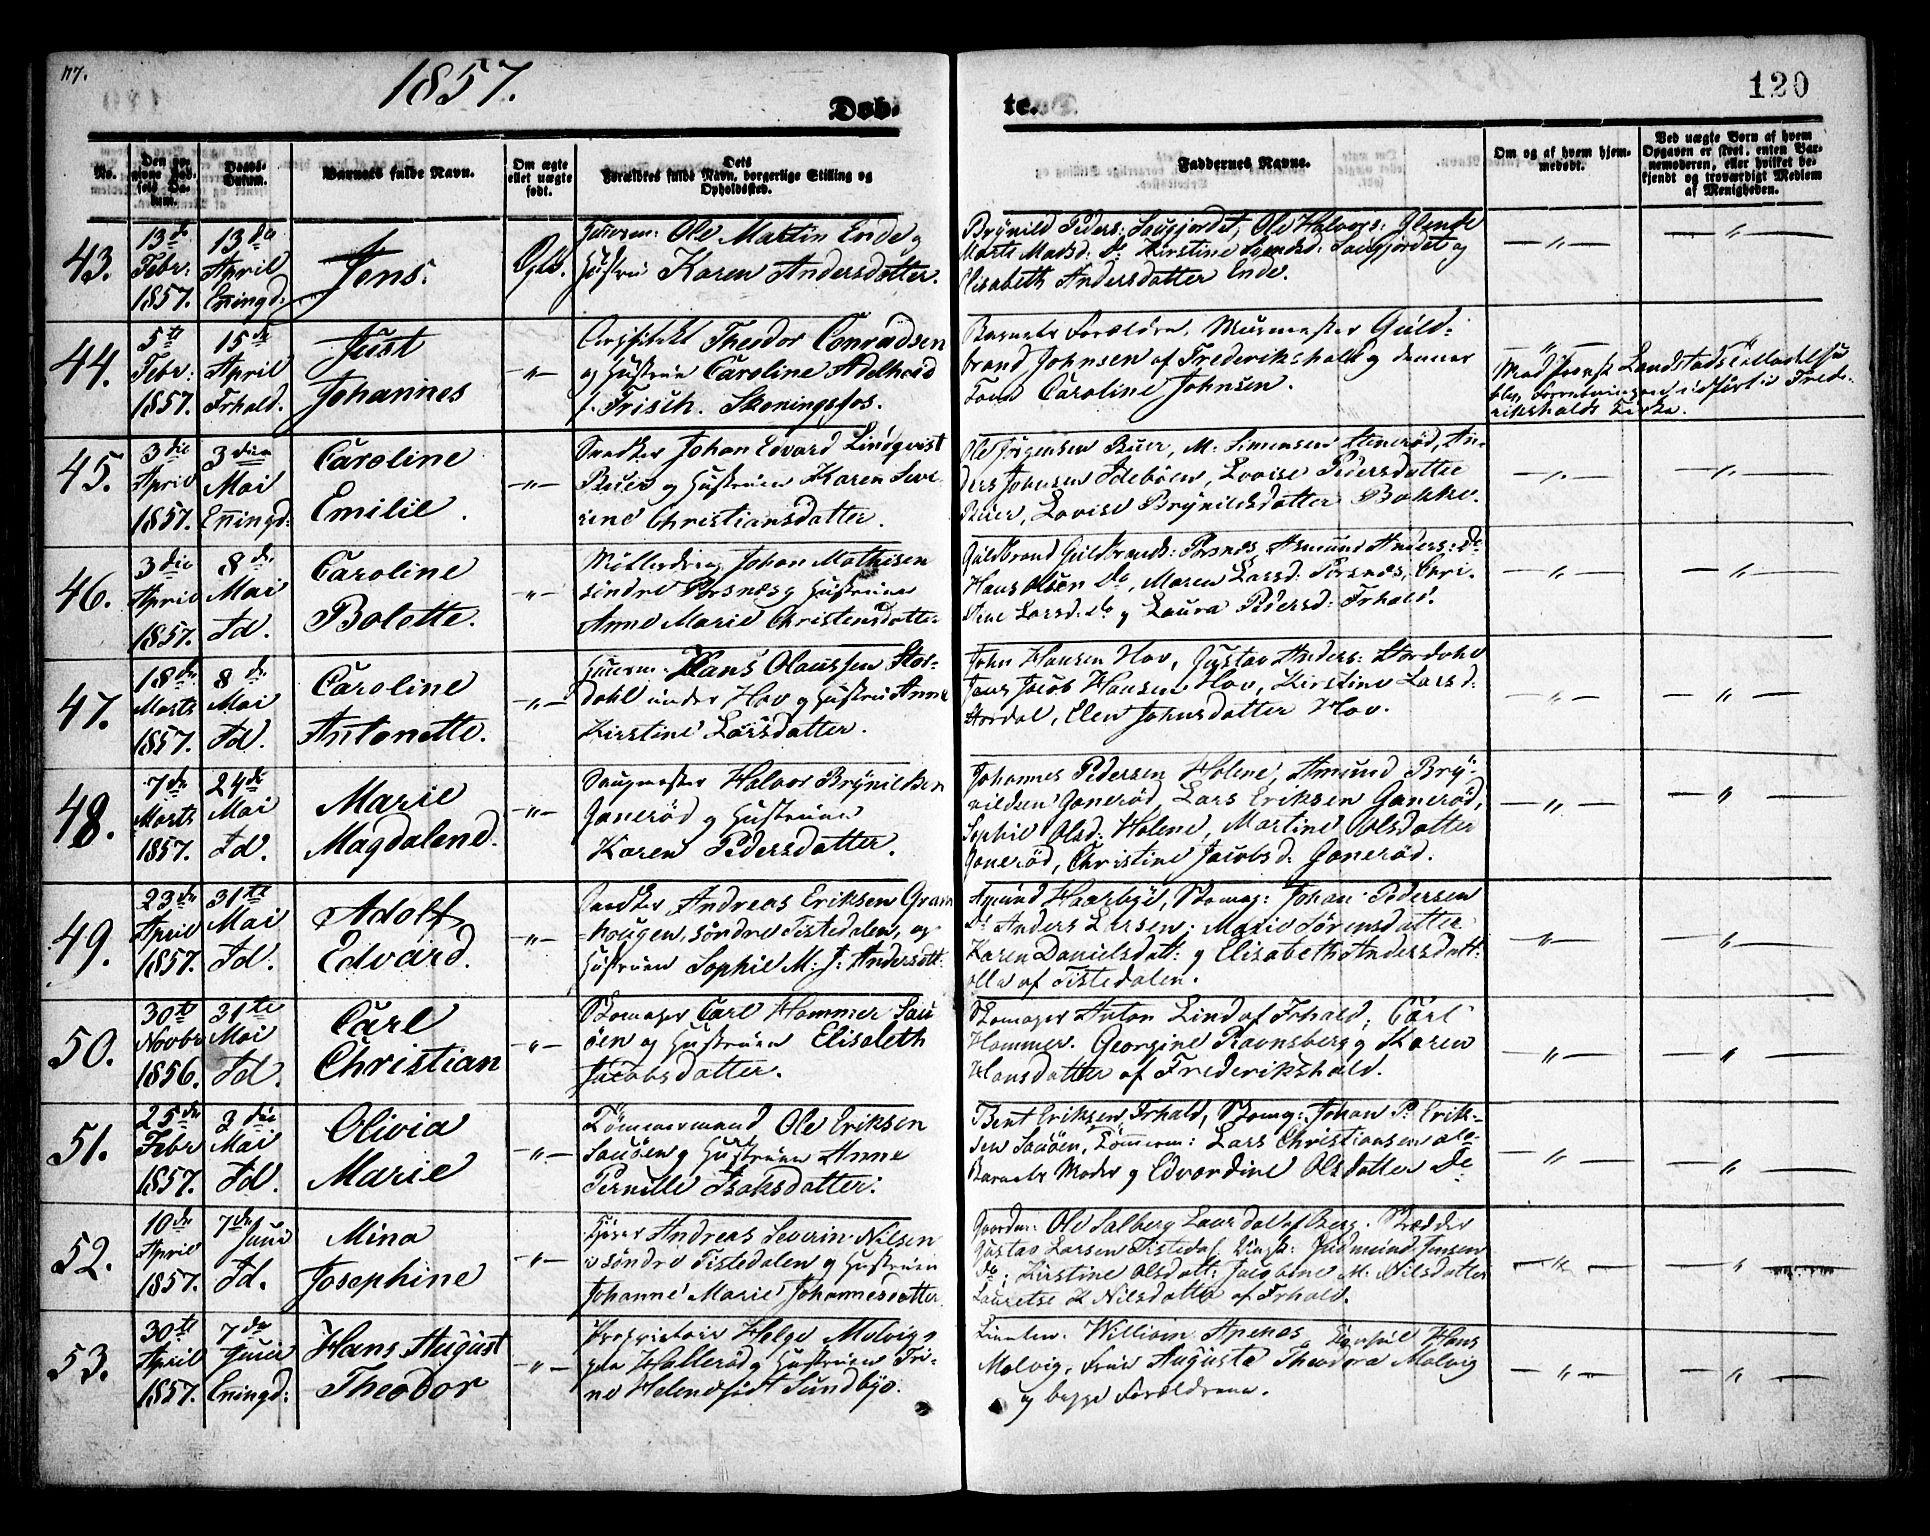 117.
1857.
Døb-
te.
120
No.
Den op-
givne Fød-
sels Da-
tum.
Daabs-
Datum.
Barnets fulde Navn.
Om ægte
eller uægte
født.
Dets
Forældres fulde Navn, borgerlige Stilling og
Opholdssted.
Faddernes Navne.
Om og af hvem hjem-
medøbt.
Ved uægte Børn af hvem
Opgaven er skeet, enten Bar-
nemoderen, eller hvilket be-
kjendt og troværdigt Medlem
af Menigheden.
43.
13de
Febr:
1857.
13de
April
Eningd:
Jens.
Ole Martin Ende og
Hustru Karen Andersdatter.
Brynild Peders: Saugjordet, Ole Halvors: Glende
Marte Madsd: Do Kirstine Svendsd: Saugjordet og
Elisabeth Andersdatter Ende.
— " —
— " —
44.
5te
Febr:
1857.
15de
April
Frhald.
Just
Johannes
— " —
Theodor Conradsen
og Hustru Caroline Adelheid
f. Frisch. Skoningsfos.
Barnets Forældre, Murmester Guld-
brand Johnsen af Frederikshald og dennes
Caroline Johnsen.
Landstads
riksholds Kirke.
45.
3die
April
1857.
3die
Mai
Eningd:
Caroline
Emilie.
— " —
Johan Edvard Lindqvist
Buer og Hustruen Karen Seve-
rine Christiansdatter.
Ole Jørgensen Buer, M: Simensen Stenerød, An-
ders Johnsen Idebøen, Lovise Pedersdatter
Buer, Lovise Brynildsdatter Bakke.
— " —
— " —
46.
3die
April
1857.
8de
Mai
Id.
Caroline
Bolette.
— " —
Johan Mathisen
søndre Porsnæs og Hustruen
Anne Marie Christensdatter
Guldbrand Guldbrands: Porsnæs, Asmund Anders: do
Hans Olsen do, Maren Larsd: Porsnæs, Chri-
stine Larsd: do og Laura Pedersd: Frhald.
— " —
— " —
47.
18de
Marts
1857.
8de
Mai
Id.
Caroline
Antonette.
— " —
Huusm: Hans Olaussen Stor-
dahl under Hov og Hustru Anne
Kirstine Larsdatter.
John Hansen Hov, Gustav Anders: Stordahl
Jens Jacob Hansen Hov, Kirstine Larsd:
Stordal, Elen Johnsdatter Hov.
— " —
— " —
48.
7de
Marts
1857.
24de
Mai
Id.
Marie
Magdalene.
— " —
Saugmester Halvor Brynildsen
Gonerød og Hustruen
Karen Pedersdatter.
Johannes Pedersen Holene, Amund Bry-
nildsen Gonerød, Lars Eriksen Gonerød,
Sophie Olsd: Holene, Martine Olsdatter
Gonerød, Christine Jacobsd: Gonerød.
— " —
— " —
49.
23de
April
1857.
31te
Mai
Id.
Adolf
Edvard.
— " —
Andreas Eriksen Gran-
hougen, søndre Tistedalen, og
Hustruen Sophie M: J: Andersdatt:
Amund Haarbye, Skomag: Johan Pedersen
Do Anders Larsen, Marie Sørensdatter
Karen Danielsdatt: og Elisabeth Andersdatt:
alle af Tistedalen.
— " —
— " —
50.
30te
Novbr
1856.
31te
Mai
Id.
Carl
Christian
— " —
Skomager Carl Hammer Sau-
øen og Hustruen Elisabeth
Jacobsdatter.
Skomager Anton Lind af Frhald, Carl
Hammer, Georgine Ravnsberg og Karen
Hansdatter af Frederikshald.
— " —
— " —
51.
25de
Febr
1857.
3die
Mai
Id.
Olivia
Marie
— " —
Tømmermand Ole Eriksen
Sauøen og Hustruen Anne
Pernille Isaksdatter.
Bent Eriksen Frhald, Skomag: Johan P: Erik-
sen Sauøen, Tømmerm: Lars Christiansen
Barnets Moder og Edvardine Olsdatter Do
— " —
— " —
52.
10de
April
1857.
7de
Juni
Id.
Mina
Josephine
— " —
Andreas Severin Nilsen
i søndre Tistedalen og Hustruen
Johanne Marie Johannesdatter
Ole Salberg Berg. Skrædder
Gustav Larsen Tistedal, Gudmund Jensen
do, Kirstine Olsdatt: Jacobine M: Nilsdatter
Nilsdatter af Frhald.
— " —
— " —
53.
30te
April
1857.
7de
Juni
Eningd:
Hans August
Theodor
— " —
Proprietair Helge Molvig
paa Hallerød og Hustruen Tri-
ne Helene født Sundbye.
William Apenæs, Hans
Molvig, Frue Augusta Theodora Molvig
og begge Forældrene.
— " —
— " —